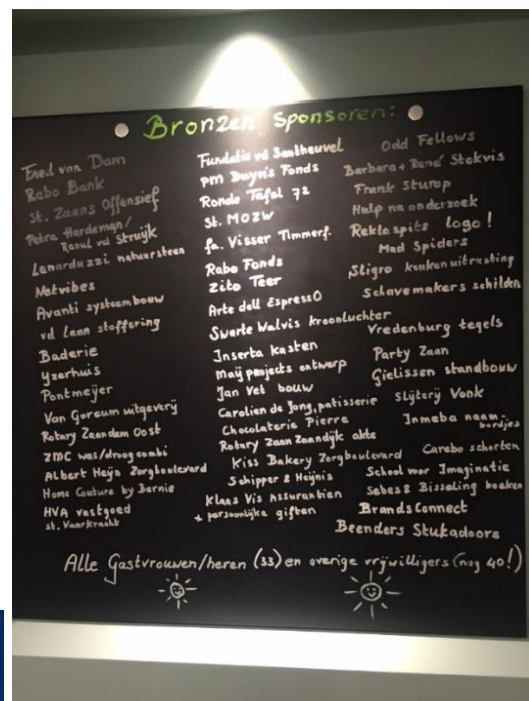 Bronzen Sponsoren:
Fred van Dam
Rabo Bank
St. Zaans Offensief
Petra Hardeman/
Raoul vd Struijk
Lenarduzzi natuursteen
Netvibes
Avanti systeembouw
vd Laan stoffering
Baderie
Yzerhuis
Pontmeyer
Van Gorcum uitgeverij
Rotary Zaandam Oost
ZMC was/droogcombi
Albert Heijn Zorgboulevard
Home Couture by Bernie
HVA vastgoed
St. Vaarkracht
Fundatie vd Santheuvel
pm Duyvis Fonds
Ronde Tafel 72
St. MOZW
fa. Visser Timmerf.
Rabo Fonds
Zito Teer
Arte dell EspressO
Swarte Walvis kroonluchter
Inserta kasten
Maij projects ontwerp
Jan Vet bouw
Carolien de Jong, patisserie
Chocolaterie Pierre
Rotary Zaan Zaandijk akte
Kiss Bakery Zorgboulevard
Schipper & Heijnis
Klaas Vis Assurantien
+ persoonlijke giften
Odd Fellows
Barbara + René Stokvis
Frank Sturop
Hulp na onderzoek
Rekla spits logo!
Mad Spiders
Sligro keukenuitrusting
Schavemakers schilders
Vredenburg tegels
Party Zaan
Gielissen standbouw
Slijterij Vonk
Inmeba naam-
bordjes
Carebo schorten
School voor Imaginatie
Sebes & Bisseling boeken
BrandsConnect
Beenders Stukadoors
Alle Gastvrouwen/heren (33) en overige vrijwilligers (nog 40!)